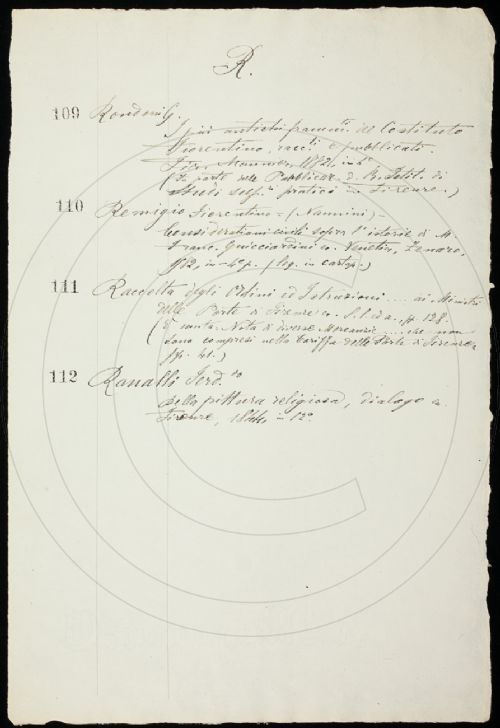 R.
109 Rondoni G.
I più antichi framm.ti del Costituto
Fiorentino, racc.ti e pubblicato.
Fir. 1882. in 8°
(Fa parte delle Pubblicaz. d. R. Istit. di
Studi sup.ri pratici in Firenze.)
110 Remigio Fiorentino = (Nannini) -
Considerationi civili sopra l'istorie di M.
Franc. Guicciardini ec. Venetia, Zenaro,
1582, in-4° p. (leg. in cartap.)
111 Raccolta degli Ordini ed Istruzioni .... ai Ministri
delle Porte di Firenze ec. S. l. ed a., pp. 128.
(Di Nota di diverse Mercanzie .... che non
sono compresi nella tariffa delle Porte di Firenze
pp. 41.)
112 Ranalli Ferd.do
Della pittura religiosa, dialogo ec.
Firenze, 1844 in 12°